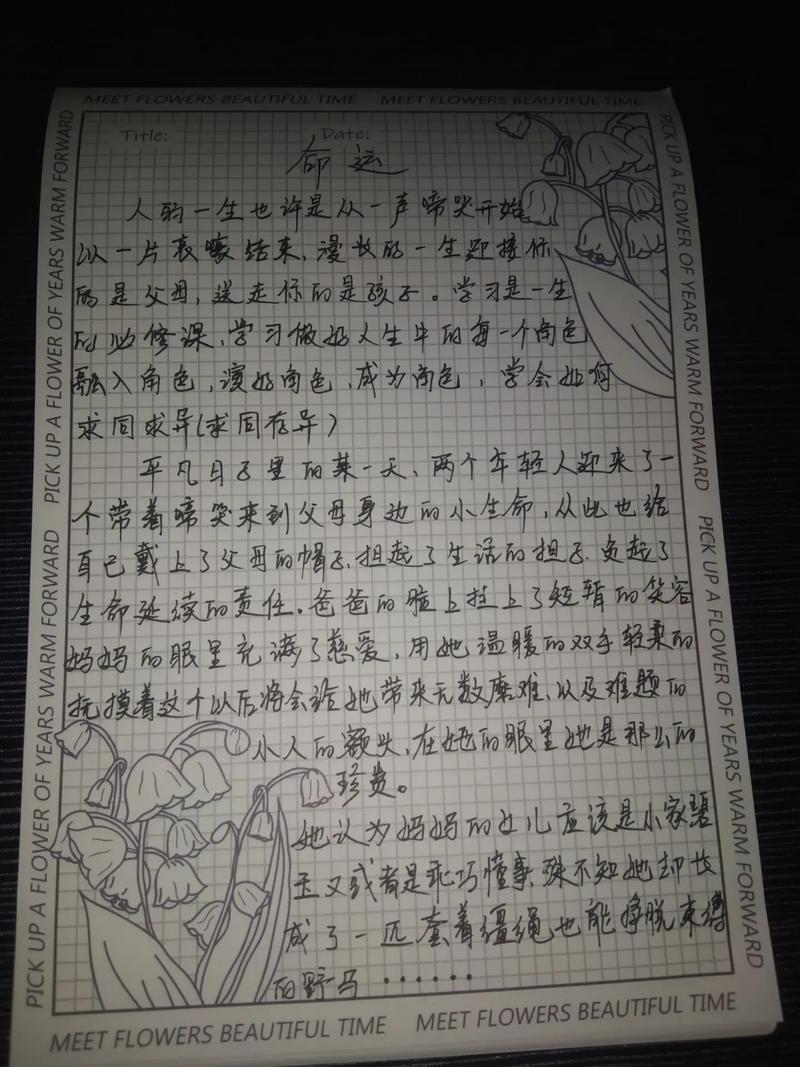 MEET FLOWERS BEAUTIFUL TIME MEET FLOWERS BEAUTIFUL TIME
Title: Date:
命运
人的一生也许是从一声啼哭开始
以一片哀嚎结束,漫长的一生迎接你
的是父母,送走你的是孩子。学习是一生
的必修课,学习做好人生中的每一个角色
融入角色,演好角色,成为角色,学会如何
求同求异(求同存异)
平凡日子里的某一天、两个年轻人迎来了一
个带着啼哭来到父母身边的小生命,从此也给
自己戴上了父母的帽子,担起了生活的担子,负起了
生命延续的责任。爸爸的脸上挂上了短暂的笑容
妈妈的眼里充满了慈爱,用她温暖的双手轻柔的
抚摸着这个以后将会给她带来无数磨难、以及难题的
小人的额头,在她的眼里她是那么的
珍贵。
她认为妈妈的女儿应该是小家碧
玉又或者是乖巧懂事,殊不知她却长
成了一匹套着缰绳也能挣脱束缚
的野马······
PICK UP A FLOWER OF YEARS WARM FORWARD PICK UP A FLOWER OF YEARS WARM FORWARD
PICK UP A FLOWER OF YEARS WARM FORWARD PICK UP A FLOWER OF YEARS WARM FORWARD
MEET FLOWERS BEAUTIFUL TIME MEET FLOWERS BEAUTIFUL TIME